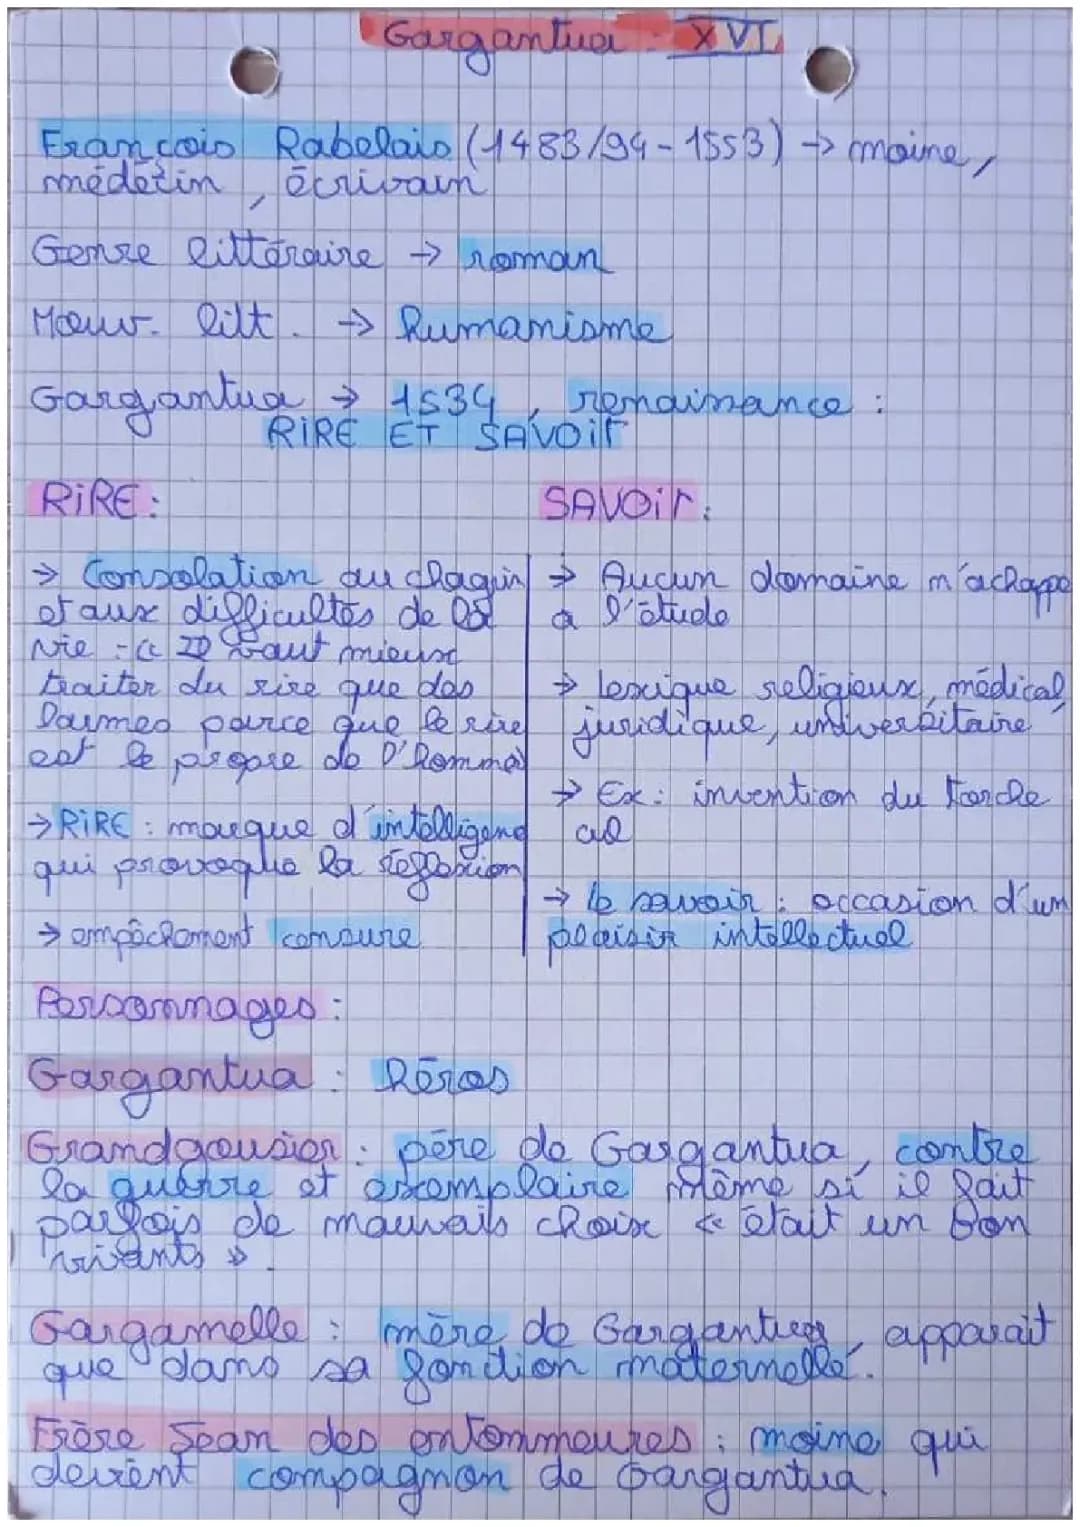 Gargantua : XVI
François Rabelais (1483/94 - 1553) → moine,
médecin, écrivain
Genre littéraire → roman
Mouv. litt. → humanisme
Gargantua → 1534, renaissance :
RIRE ET SAVOIR
RIRE :
→ Consolation au chagrin
et aux difficultés de la
vie : « Il vaut mieux
traiter du rire que des
larmes parce que le rire
est le propre de l'homme
→ RIRE : marque d'intelligence
qui provoque la réflexion
→ empêchement censure
SAVOIR :
→ Aucun domaine n'échappe
a l'étude
→ lexique religieux, médical,
juridique, universitaire
→ Ex : invention du torche
cul
→ le savoir : occasion d'un
plaisir intellectuel
Personnages :
Gargantua : héros
Grandgousier : père de Gargantua, contre
la guerre et exemplaire même si il fait
parfois de mauvais choix « était un bon
vivants ».
Gargamelle : mère de Gargantua, apparait
que dans sa fonction maternelle.
Frère Jean des entommeures : moine qui
devient compagnon de Gargantua.